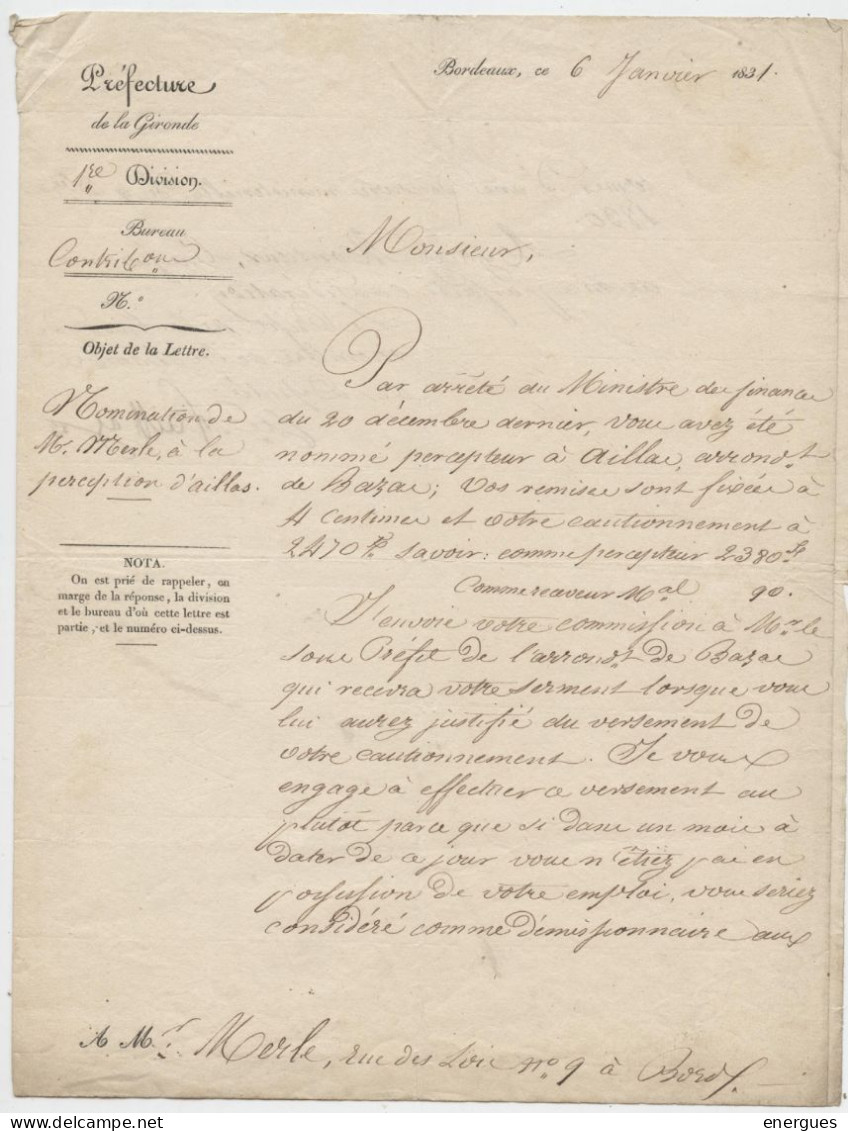 Préfecture
de la Gironde
1re Division.
Bureau
Contribons
N.o
Objet de la Lettre.
Nomination de
Mr. Merle, à la
perception d'aillas.
NOTA.
On est prié de rappeler, en
marge de la réponse, la division
et le bureau d'où cette lettre est
partie, et le numéro ci-dessus.
Bordeaux, ce 6 Janvier 1831.
Monsieur,
Par arrêté du Ministre des finances
du 20 décembre dernier, vous avez été
nommé percepteur à Aillas, arrondt
de Bazas; vos remises sont fixées à
4 centimes et votre cautionnement à
2470 f. savoir: comme percepteur 2380 f.
Comme receveur Mal 90.
J'envoie votre commission à Mr. le
sous Préfet de l'arrondt de Bazas
qui recevra votre serment lorsque vous
lui aurez justifié du versement de
votre cautionnement. Je vous
engage à effectuer ce versement au
plutôt parce que si dans un mois à
dater de ce jour vous n'étiez pas en
possession de votre emploi, vous seriez
considéré comme démissionnaire aux
A Mr. Merle, rue des Lois no. 9 à Bordx.
delcampe.net
energues